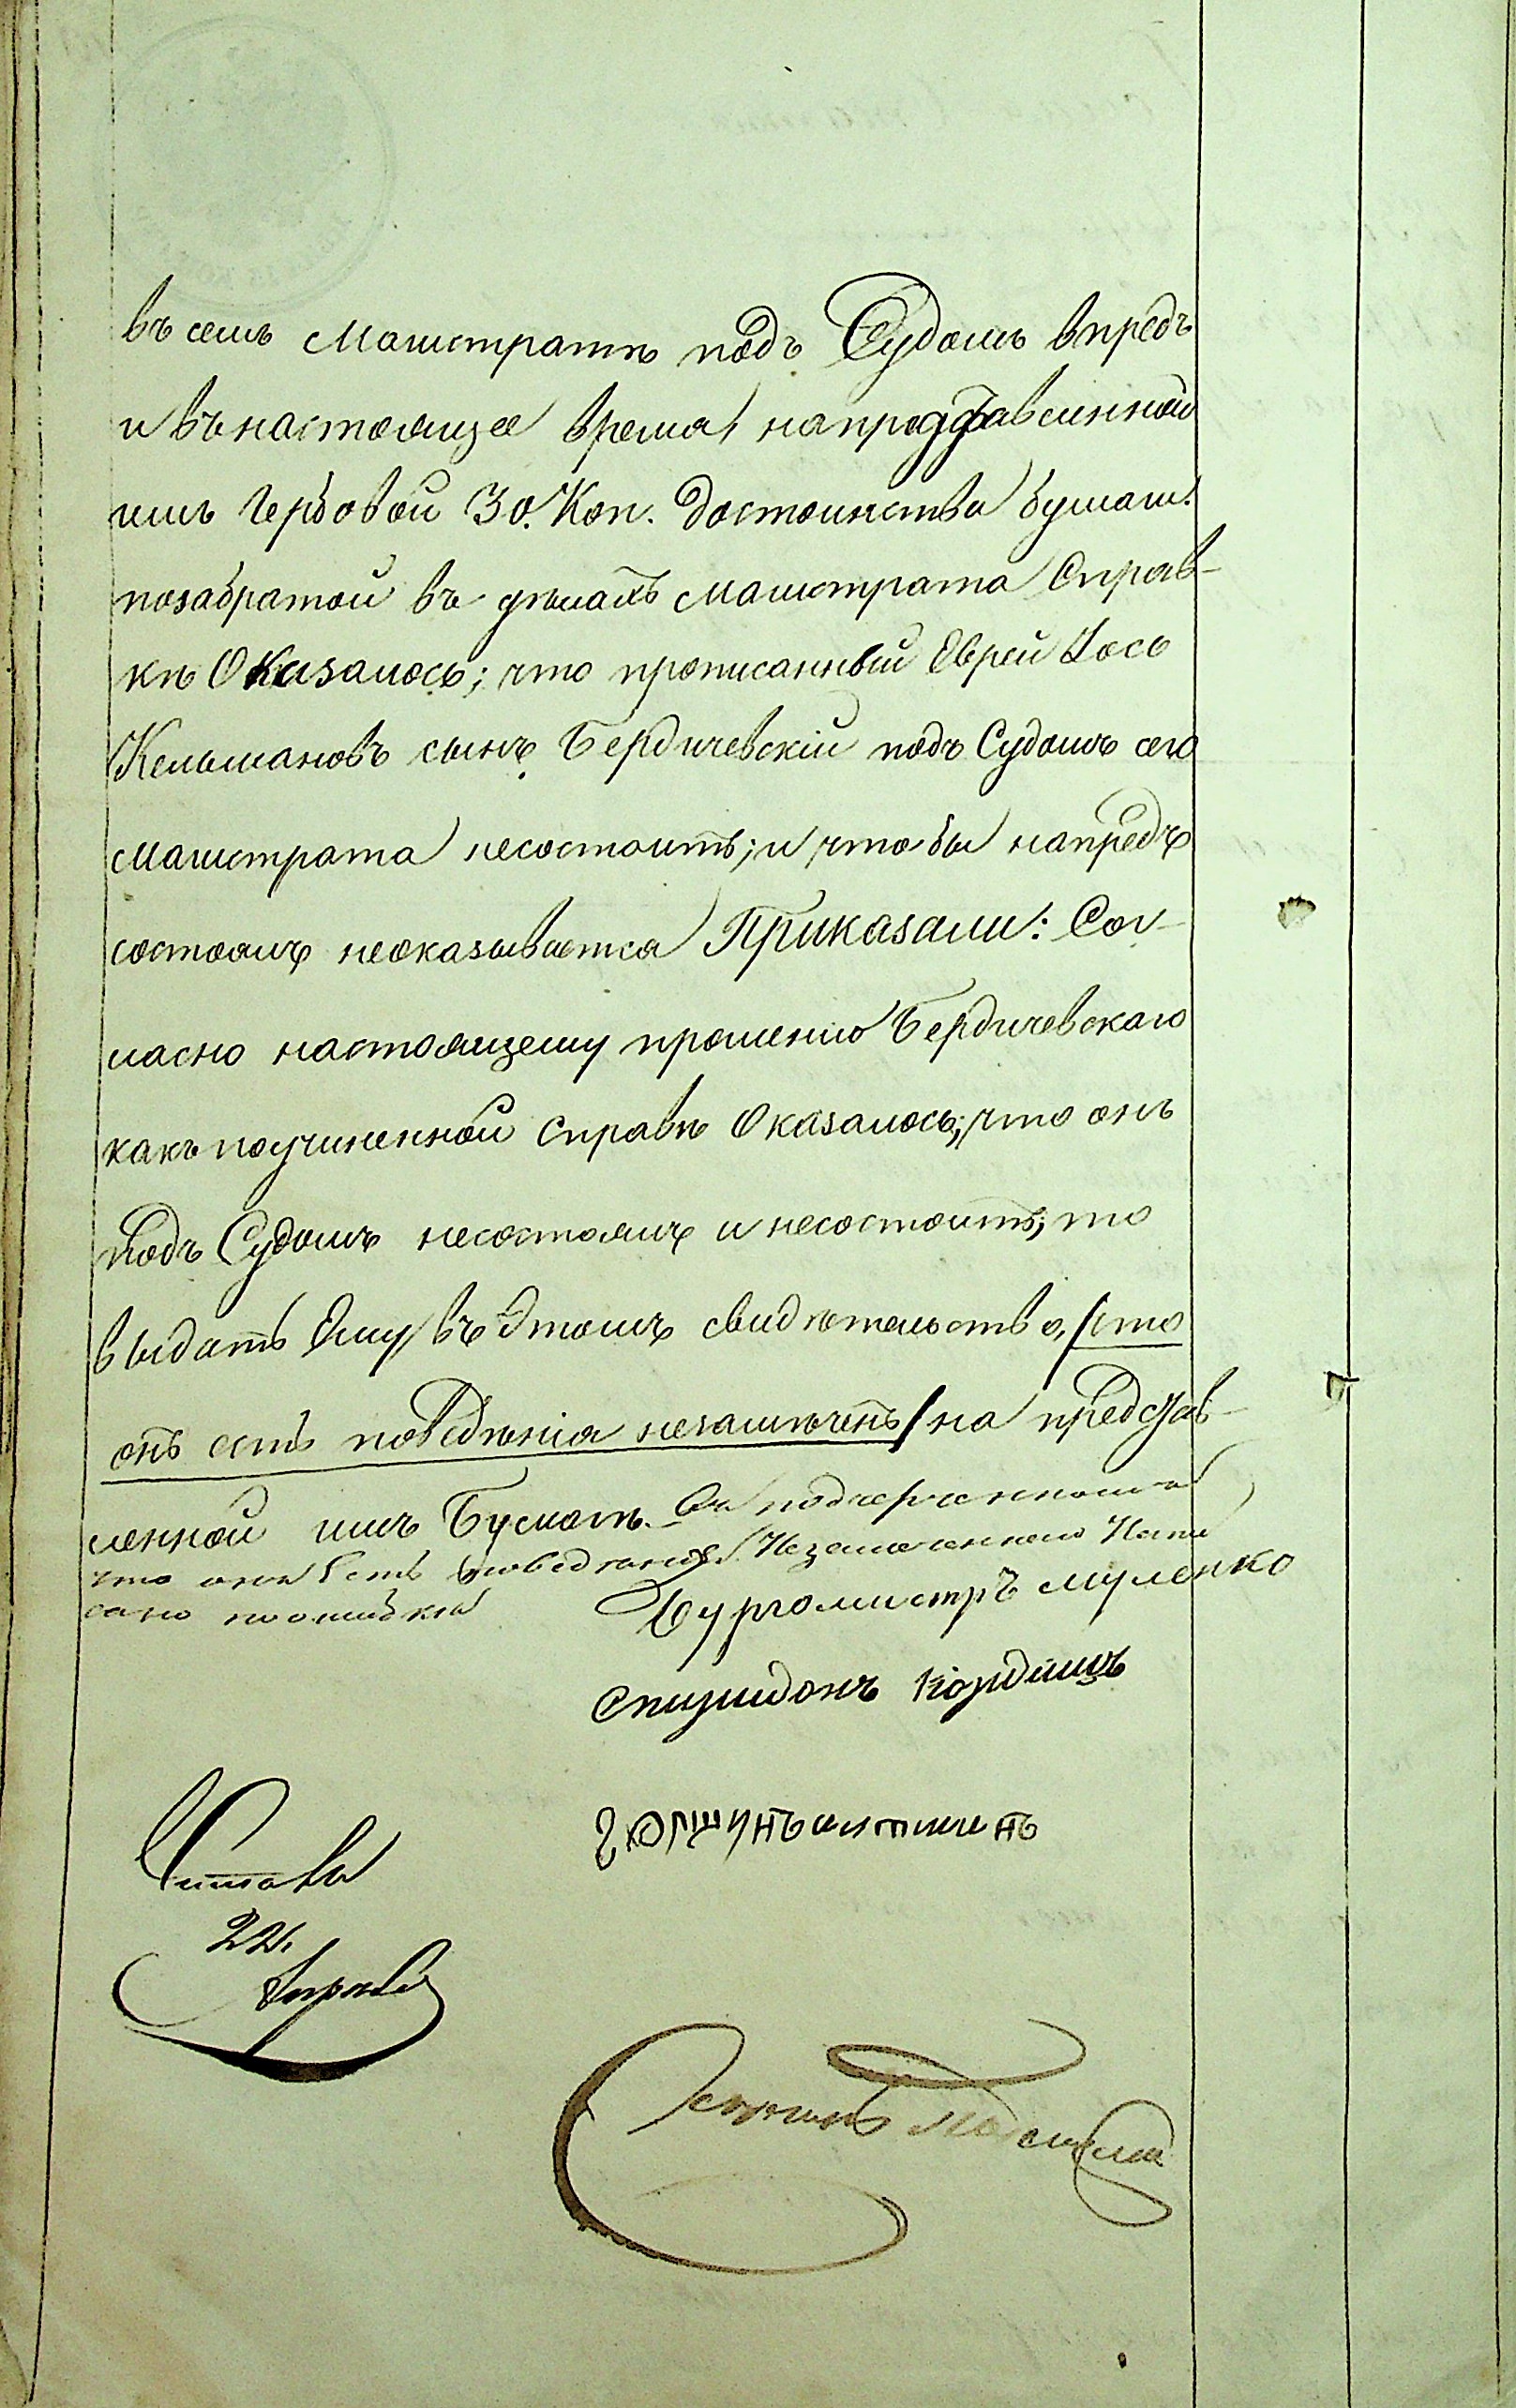 въ семъ Магистратѣ подъ Судомъ впредъ
и въ настоящее время, на представленной
имъ Гербовой 30. Коп. достоинства бумаги.
позабратой въ дѣлахъ Магистрата Справ-
кѣ Оказалось; что прописанный Еврей Іось
Кельмановъ сынъ Бердичевскій подъ Судомъ сего
Магистрата несостоитъ; и что бы напредъ
состоялъ неоказывается Приказали: Сог-
ласно настоящему прошенію Бердичевскаго
какъ поучиненной Справкѣ Оказалось; что онъ
подъ Судомъ несостоялъ и несостоитъ, то
выдать Ему въ Этомъ свидѣтельство, /что
онъ есть поведѣнія незамѣченъ/ на представ-
ленной имъ Бумагѣ. подчеркенного
что онъ Есть поведенія Незамеченного Напи
сано поошибки
Бургомистръ Муленко
Спиридонъ
Читалъ
22.